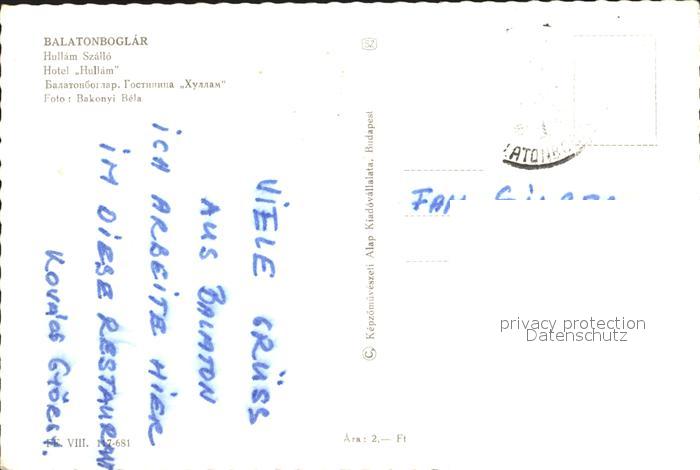 BALATONBOGLÁR
Hullám Szálló
Hotel „Hullám”
Балатонбоглар. Гостиница „Хуллам”
Foto: Bakonyi Béla
SZ
ATONBO
© Képzőművészeti Alap Kiadóvállalata, Budapest
VIELE GRÜSS
AUS BALATON
ICH ARBEITE HIER
IM DIESE RESTAURAN
KOVÁCS
FAM
privacy protection
Datenschutz
VIII. 117-681
Ára: 2,— Ft